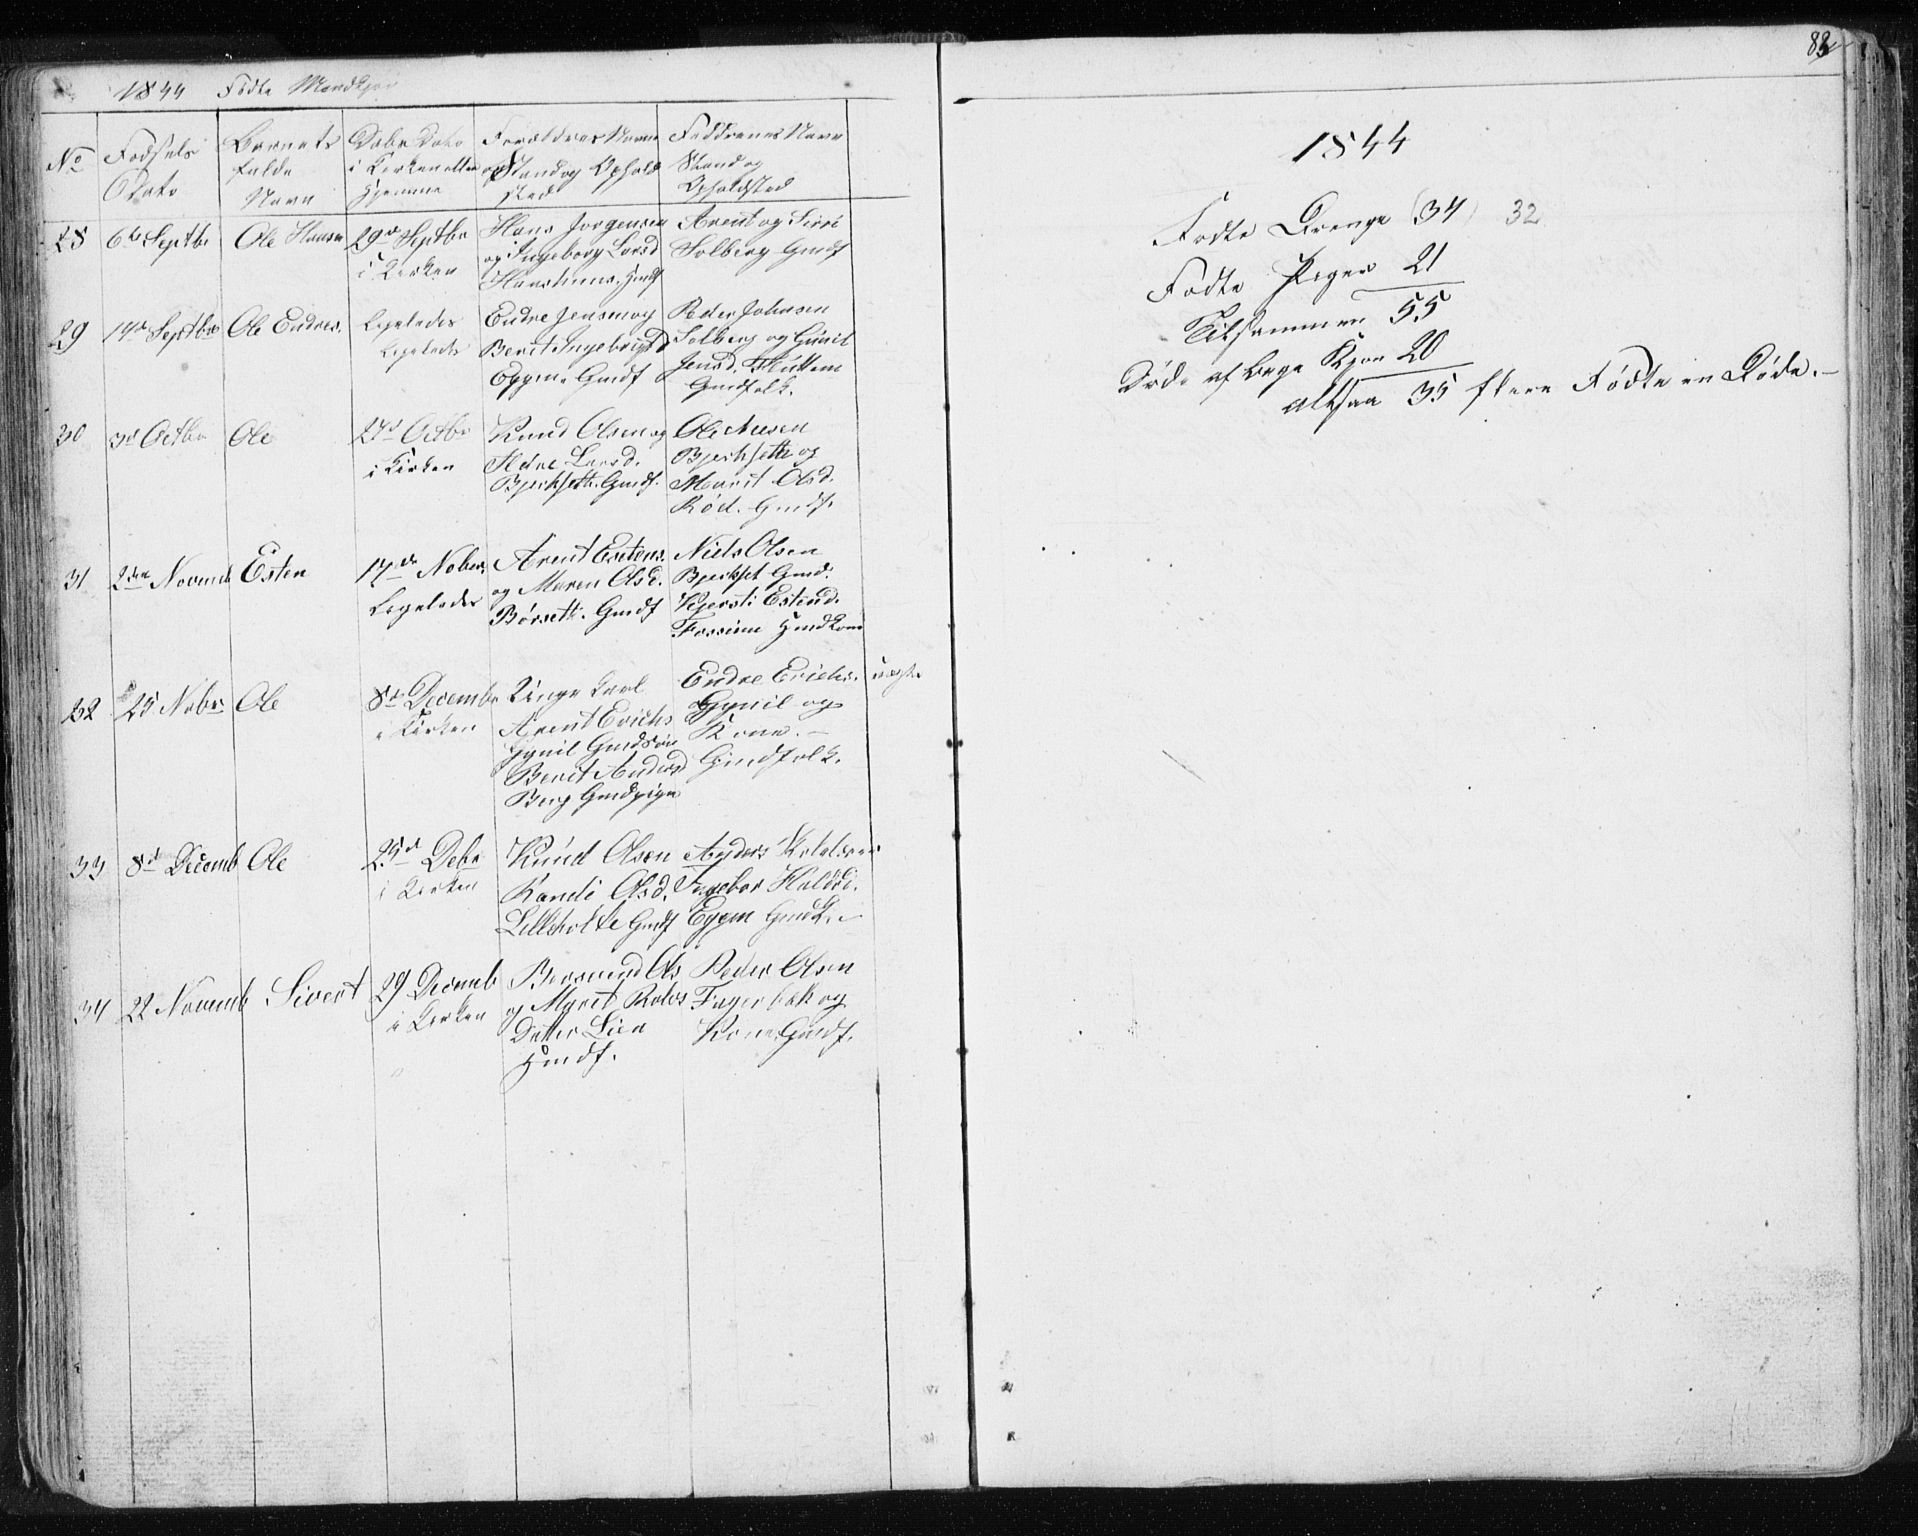 1844 Fødte Mandkjøn
No
Fødsels
Dato
Barnets
fulde
Navn
Døbe Dato
i Kirken eller
Hjemme
Forældres Navne
og Stand og Ophold
sted
Faddrenes Navn
Stand og
Opholdsted
28 6te Septbr Ole Hansen 29de Septbr
i Kirken
Hans Jørgensen
og Ingeborg Larsd
Gmdf
Arent og Siri
Solberg Gmdf
29 14de Septbr Ole Endres. Ligeledes
Ligeledes
Endre Jensen og
Berit Ingebrigtsd
Eggen Gmdf
Peder Johnsen
Solberg og Gunil
Jensd. Fluttem
Gmdfolk.
30 3de Octbr Ole 27de Octbr
i Kirken
Knud Olsen og
Larsd.
Bjerksetth. Gmdf.
Ole
Bjerksetth og
Marit Olsd.
Rød. Gmdf.
31 2den Novemb Esten 17de Nobr.
Ligeledes
Arent Estens.
og Maren Olsd.
Børseth. Gmdf
Niels Olsen
Bjerkset Gmd.
Kjersti Estend.
Fossum Gmdkone
32 25 Nobr Ole 8de Decembr
i Kirken
Unge Karl
Arent Erichs
Gynil Gmdsøn
Berit Andersd
Berg Gmdpige
Endre Erichs.
Gynil og
Kone. —
Gmdfolk.
uægte
33 8de Decemb Ole 25de Debr
i Kirken
Knud Olsen
Randi Olsd.
Lilleholte Gmdf
Anders
Ingebor Haldsd.
Eggen Gmdf. —
34 22 Novemb Sivert 29 Decemb
i Kirken
Bersvend Ols
og Marit Rolvs
Datter Lien
Gmdf.
Peder Olsen
Fagerbæk og
Kone Gmdf.
83
1844
Fødte Drenge (34) 32
Fødte Piger 21
Tilsammen 55
Døde af Bege Kjøn 20
altsaa 35 flere Fødte en Døde. —